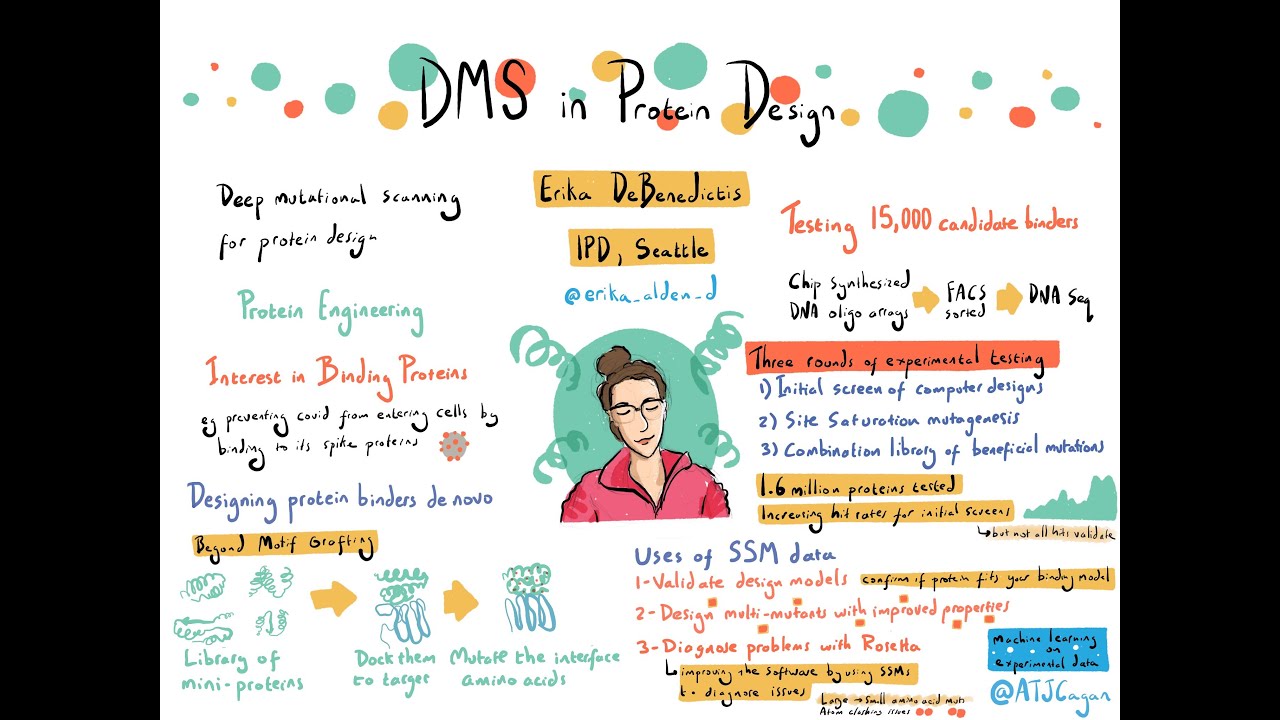 DMS in Protein Design
Deep mutational scanning
for protein design
Protein Engineering
Interest in Binding Proteins
eg preventing covid from entering cells by
binding to its spike proteins
Designing protein binders de novo
Beyond Motif Grafting
Library of
mini-proteins
Dock them
to target
Mutate the interface
amino acids
Erika DeBenedictis
IPD, Seattle
@erika_alden_d
Testing 15,000 candidate binders
Chip synthesized
DNA oligo arrays
FACS
sorted
DNA Seq
Three rounds of experimental testing
1) Initial screen of computer designs
2) Site Saturation mutagenesis
3) Combination library of beneficial mutations
1.6 million proteins tested
Increasing hit rates for initial screens
but not all hits validate
Uses of SSM data
1-Validate design models
confirm if protein fits your binding model
2-Design multi-mutants with improved properties
3-Diagnose problems with Rosetta
improving the software by using SSMs
to diagnose issues
Large → small amino acid muts
Atom clashing issues
Machine learning
on
experimental data
@ATJCagan